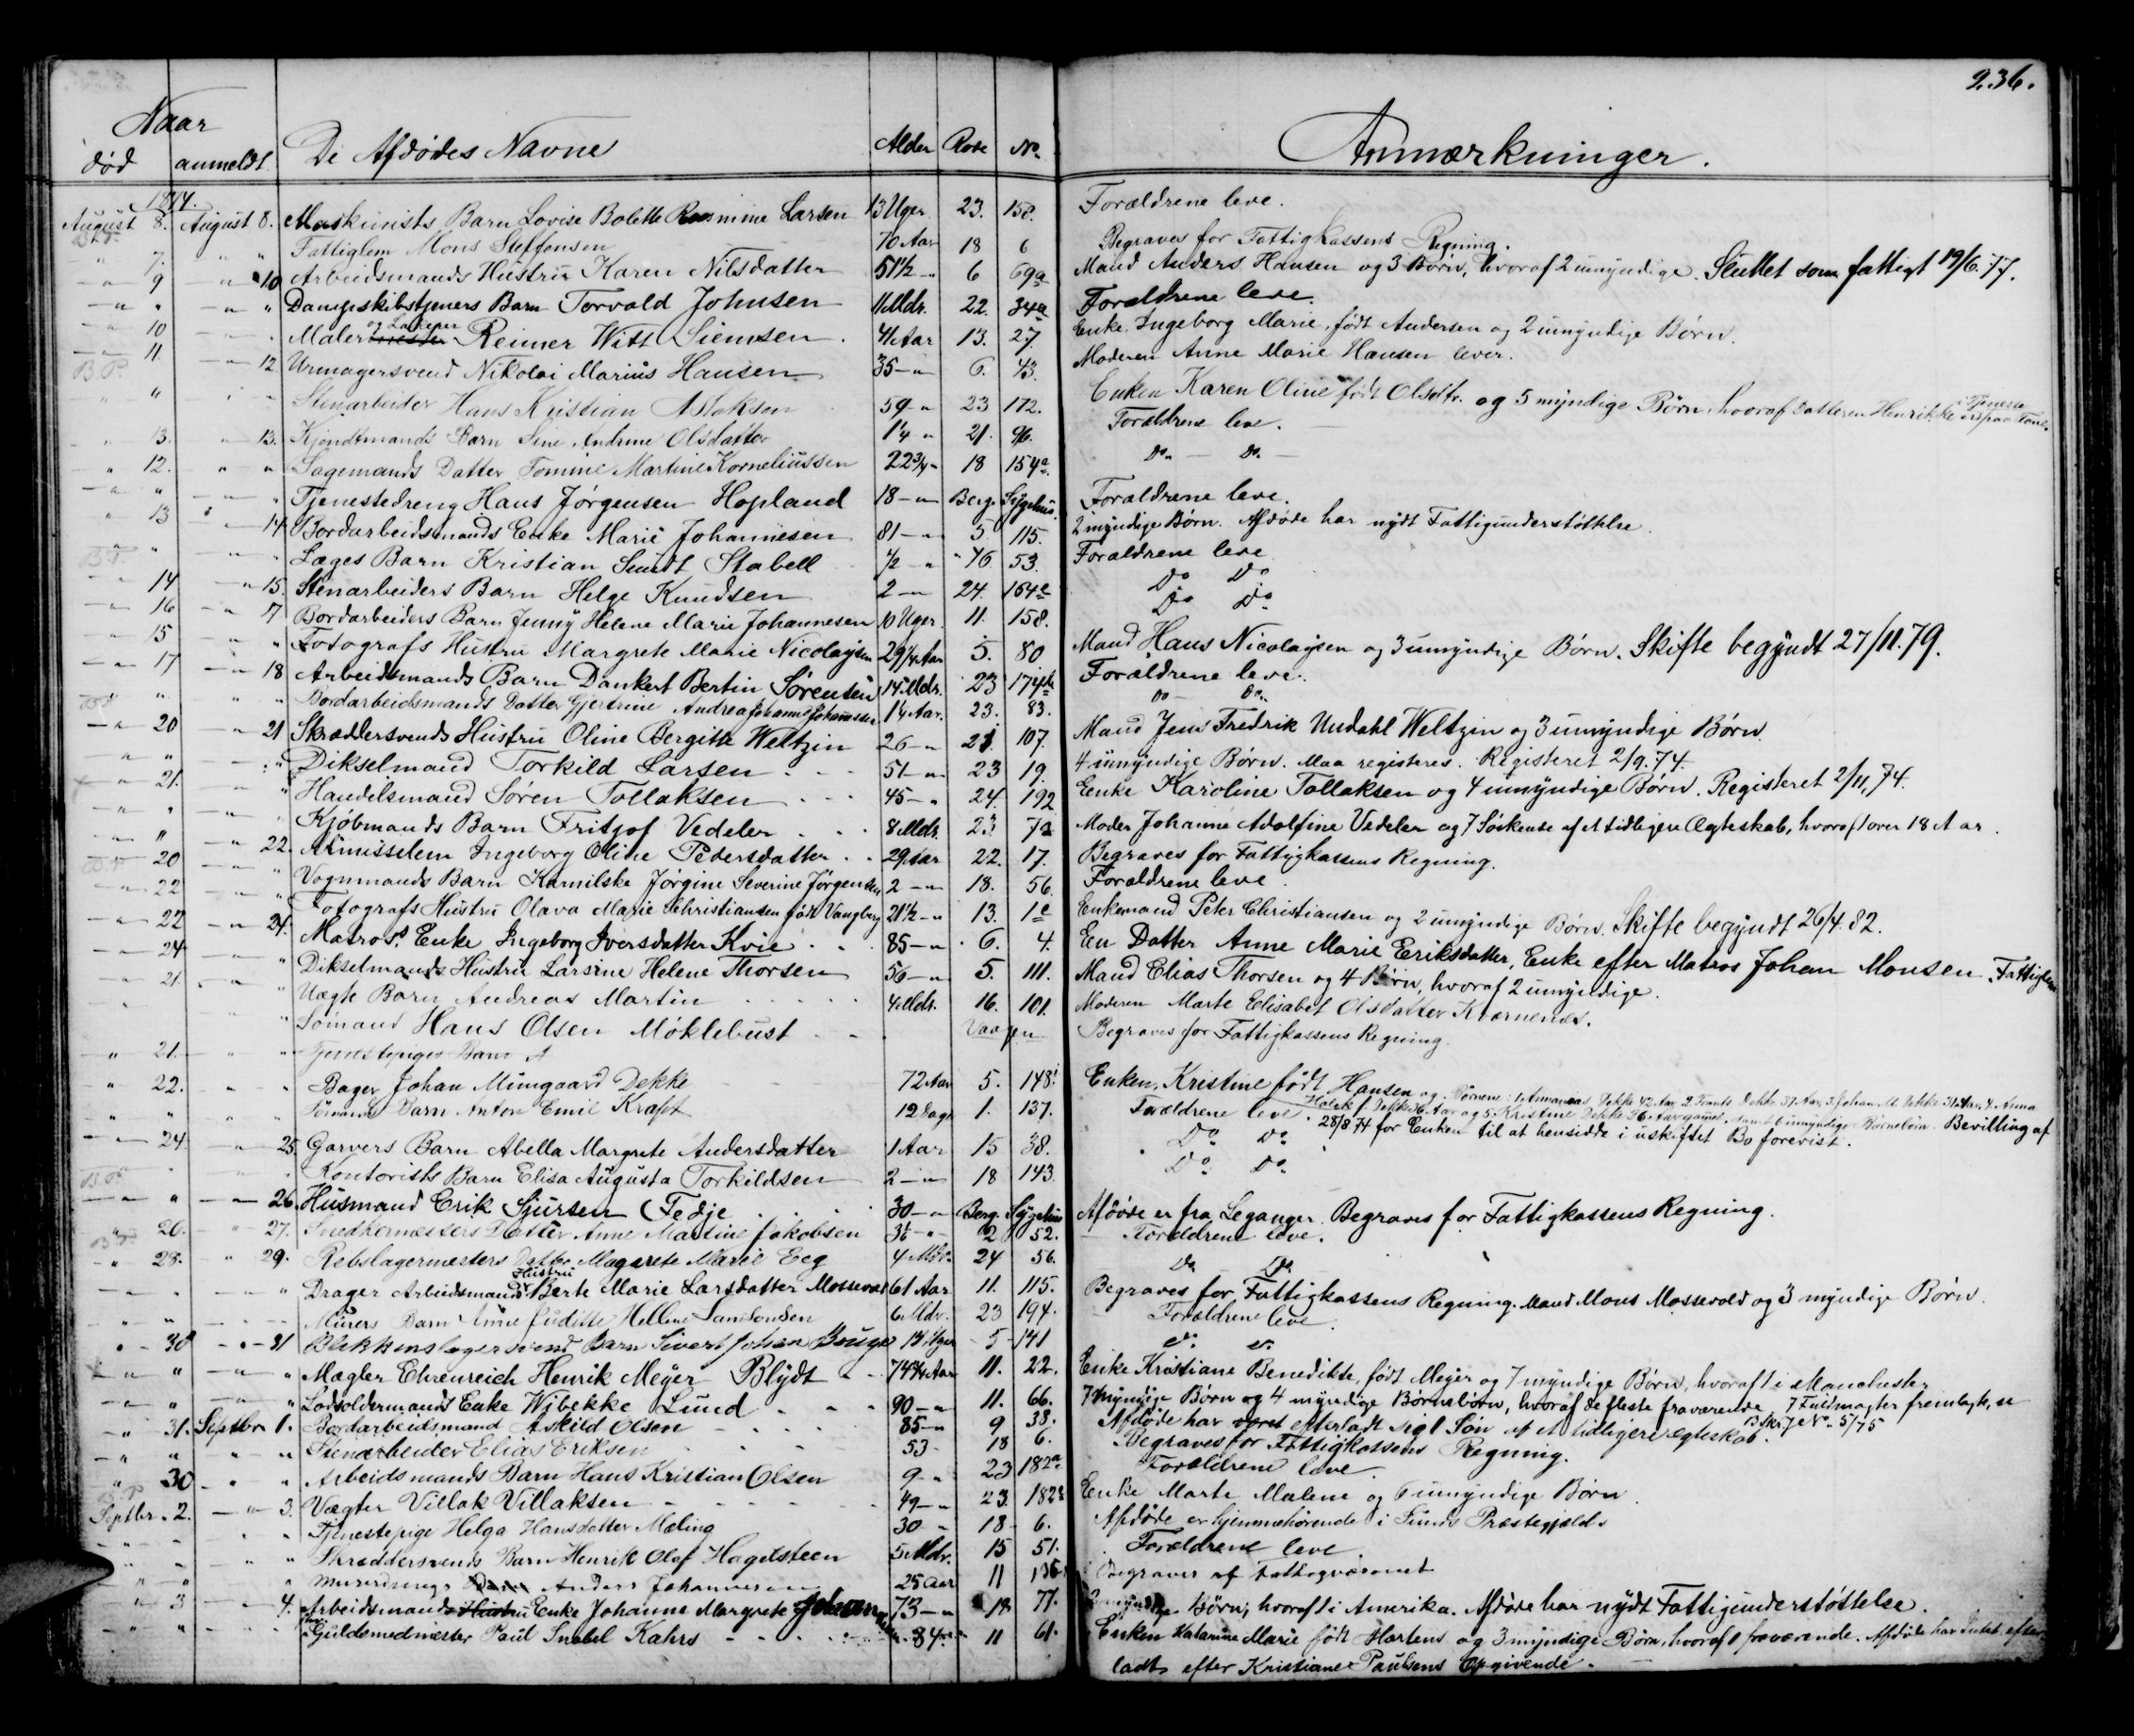 236.
Naar
død anmeldt De Afdødes Navne Alder Rode No. Anmærkninger.
1874.
August 8. August 8. Maskinists Barn Lovise Bolette Rasmine Larsen 13 Uger 23. 158. Forældrene leve.
" 7. " " Fattiglem Mons Steffensen 70 Aar 18 6 Begraves for Fattigkassens Regning.
" 9 " 10 Arbeidsmands Hustru Karen Nilsdatter 51½ " 6 69a Mand Anders Hansen og 3 Børn, hvoraf 2 umyndige. Sluttet som fattigt 19/6.77.
" " " " Dampskibstjeners Barn Torvald Johnsen 11 Mdr. 22. 34a Forældrene leve.
" 10 " Maler og Lakerer Reimer Witt Siemsen 41 Aar 13. 27 Enke Ingeborg Marie, født Andersen og 2 umyndige Børn.
" 11 " 12 Urmagersvend Nikolai Marius Hansen 35 " 6. 43. Moderen Anne Marie Hansen lever.
B.P.
" " Stenarbeider Hans Kristian Aslaksen 59 " 23 172. Enken Karen Oline født Olsdtr. og 5 myndige Børn, hvoraf Datteren Henrikke
" 13. " 13. Barn Sine Andrine Olsdatter 1¼ " 21. 96. Forældrene leve.
" 12. " " Sagemands Datter Tomine Martine Korneliussen 22¾ " 18 154a. Do. Do.
" " " " Tjenestedreng Hans Jørgensen Hopland 18 " Berg. Sygehus. Forældrene leve.
" 13 " 14. Bordarbeidsmands Enke Marie Johannesen 81 " 5. 115. 2 myndige Børn. Afdøde har nydt Fattigunderstøttelse.
" " " " Læges Barn Kristian Stabell ½ " 16 53. Forældrene leve
" 14 " 15. Stenarbeiders Barn Helge Knudsen 2 " 24. 164c Do Do
" 16 " 17 Bordarbeiders Barn Jenny Helene Marie Johannesen 10 Uger. 11. 158. Do Do.
" 15 " " Fotografs Hustru Margrete Marie Nicolaysen 29¼ Aar 5. 80 Mand Hans Nicolaysen og 3 umyndige Børn. Skifte begyndt 27/11.79.
" 17 " 18 Arbeidsmands Barn Dankert Bertin Sørensen 14 Mdr. 23 174b Forældrene leve.
" " " " Bordarbeidsmands Datter Gjertrine Andrea Johanne Johannessen 1¼ Aar. 23. 83. Do Do.
" 20 " 21 Skræddersvends Hustru Oline Bergitte Weltzin 26 " 21. 107. Mand Jens Fredrik Undahl Weltzin og 3 umyndige Børn.
" " " " Dikselmand Torkild Larsen 51 " 23 19. 4 umyndige Børn. Maa registeres. Registeret 2/9.74.
" 21. " " Handelsmand Søren Tollaksen 45 " 24. 192 Enke Karoline Tollaksen og 4 umyndige Børn. Registeret 2/11.74.
" " " " Kjøbmands Barn Fritjof Vedeler 8 Mdr. 23 72 Moder Johanne Adolfine Vedeler og 7 Søskende af et tidligere Ægteskab, hvoraf 1 over 18 Aar.
" " " 22. Almisselem Ingeborg Oline Pedersdatter 29 Aar 22. 17. Begraves for Fattigkassens Regning.
" 20 " " Vognmands Barn Kamilske Jørgine Severine Jørgensen 2 " 18. 56. Forældrene leve.
" 22 " " Fotografs Hustru Olava Marie Christiansen født Vangberg 21½ " 13. 1c Enkemand Peter Christiansen og 2 umyndige Børn. Skifte begyndt 26/4.82.
" 22 " 24. Matros. Enke Ingeborg Iversdatter Kvie 85 " 6. 4. Een Datter Anne Marie Eriksdatter, Enke efter Matros Johan Monsen. Fattiglem
" 24 " " Dikselmands Hustru Larsine Helene Thorsen 50 " 5. 111. Mand Elias Thorsen og 4 Børn, hvoraf 2 umyndige.
" 21. " " Uægte Barn Andreas Martin 4 Mdr. 16. 101. Moderen Marte Elisabet Olsdatter Kværnenes.
" " Sømand Hans Olsen Møklebust Vaagen Begraves for Fattigkassens Regning.
" 21. " " Tjenestepiges Barn
" 22. " " Bager Johan Mumgaard Dekke 72 Aar 5. 148. Enken, Kristine født Hansen og Børnene:
" " " " Sømands Barn Anton Emil Kraft 12 Dage 1. 137. Forældrene leve. 28/8 74 for Enken til at hensidde i uskiftet Bo forevist. Bevilling af
" 24. " 25. Garvers Barn Abella Margrete Andersdatter 1 Aar 15 38. Do Do.
B.P. " " Kontorists Barn Elisa Augusta Torkildsen 2 " 18 143. Do Do.
" " " 26. Husmand Erik Sjursen (Fedje 30 " Berg. Sygehus Afdøde er fra Leganger. Begraves for Fattigkassens Regning.
" 26. " 27. Snedkermesters Datter Anne Martine Jakobsen 3½ " 2 52. Forældrene leve.
" 28. " 29. Rebslagermesters Datter Magarete Marie Eeg 4 Mdr. 24 56. Do. Do.
" " " " Drager Arbeidsmands Hustru Berte Marie Larsdatter Mossevold 61 Aar 11. 115. Begraves for Fattigkassens Regning. Mand Mons Mossevold og 3 myndige Børn.
" " " " Murers Barn Anne Juditte Helline Samsonsen 6 Mdr. 23 194. Forældrene leve.
" 30 " 31 Blikkenslagersvend Barn Sivert Johan Bouge 14 Uger 5 141 Do. Do.
" " " " Mægler Ehrenreich Henrik Meyer Blydt 74¾ Aar 11. 22. Enke Kristiane Benedikte, født Meyer og 7 myndige Børn, hvoraf 1 i Manchester
" " " " Lodsoldermands Enke Wibekke Lund 90 " 11. 66. 7 Myndige Børn og 4 myndige Børnebørn, hvoraf de fleste fraværende. 7 Fuldmagter fremlagte, se
" 31. Septbr 1. Bordarbeidsmand Askild Olsen 85 " 9 38. Afdøde har efterladt sig 1 Søn af et tidligere Ægteskab. 5/75
" " " " Stenarbeider Elias Eriksen 53 18 6. Begraves for Fattigkassens Regning.
" 30 " " Arbeidsmands Barn Hans Kristian Olsen 9 " 23 182a Forældrene leve.
Septbr. 2. " 3. Vægter Villak Villaksen 49 " 23. 182 Enke Marte Malene og 6 umyndige Børn.
" " " " Tjenestepige Helga Hansdatter Mæling 30 " 18 6. Afdøde er hjemmehørende i Sunds Præstegjeld.
" " " " Skræddersvends Barn Henrik Olaf Hagelsteen 5 Mdr. 15 51. Forældrene leve.
" " " " Anders Johannesen 25 Aar 11 136 Begraves af Fattigvæsenet
" 3 " 4. Arbeidsmands Hustru Enke Johanne Margrete Johannesen 73 " 18 77. 2 myndige Børn, hvoraf 1 i Amerika. Afdøde har nydt Fattigunderstøttelse.
" " " Guldsmedmester Paul Snabel Kahrs 84 " 11 61. Enken Katarine Marie født Hartens og 3 myndige Børn, hvoraf 1 fraværende. Afdøde har Intet efter
ladt efter Kristiane Paulsens Opgivende.